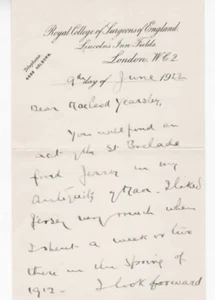 Royal College of Surgeons of England
Lincoln's Inn Fields
London, W.C.2
Telephone
HOLBORN
9th day of June 1922
Dear Macleod Yearsley,
You will find an
act of the St Brelade
find Jersey in my
Antiquity of Man. I liked
Jersey very much when
I spent a week or two
there in the Spring of
1912. I look forward